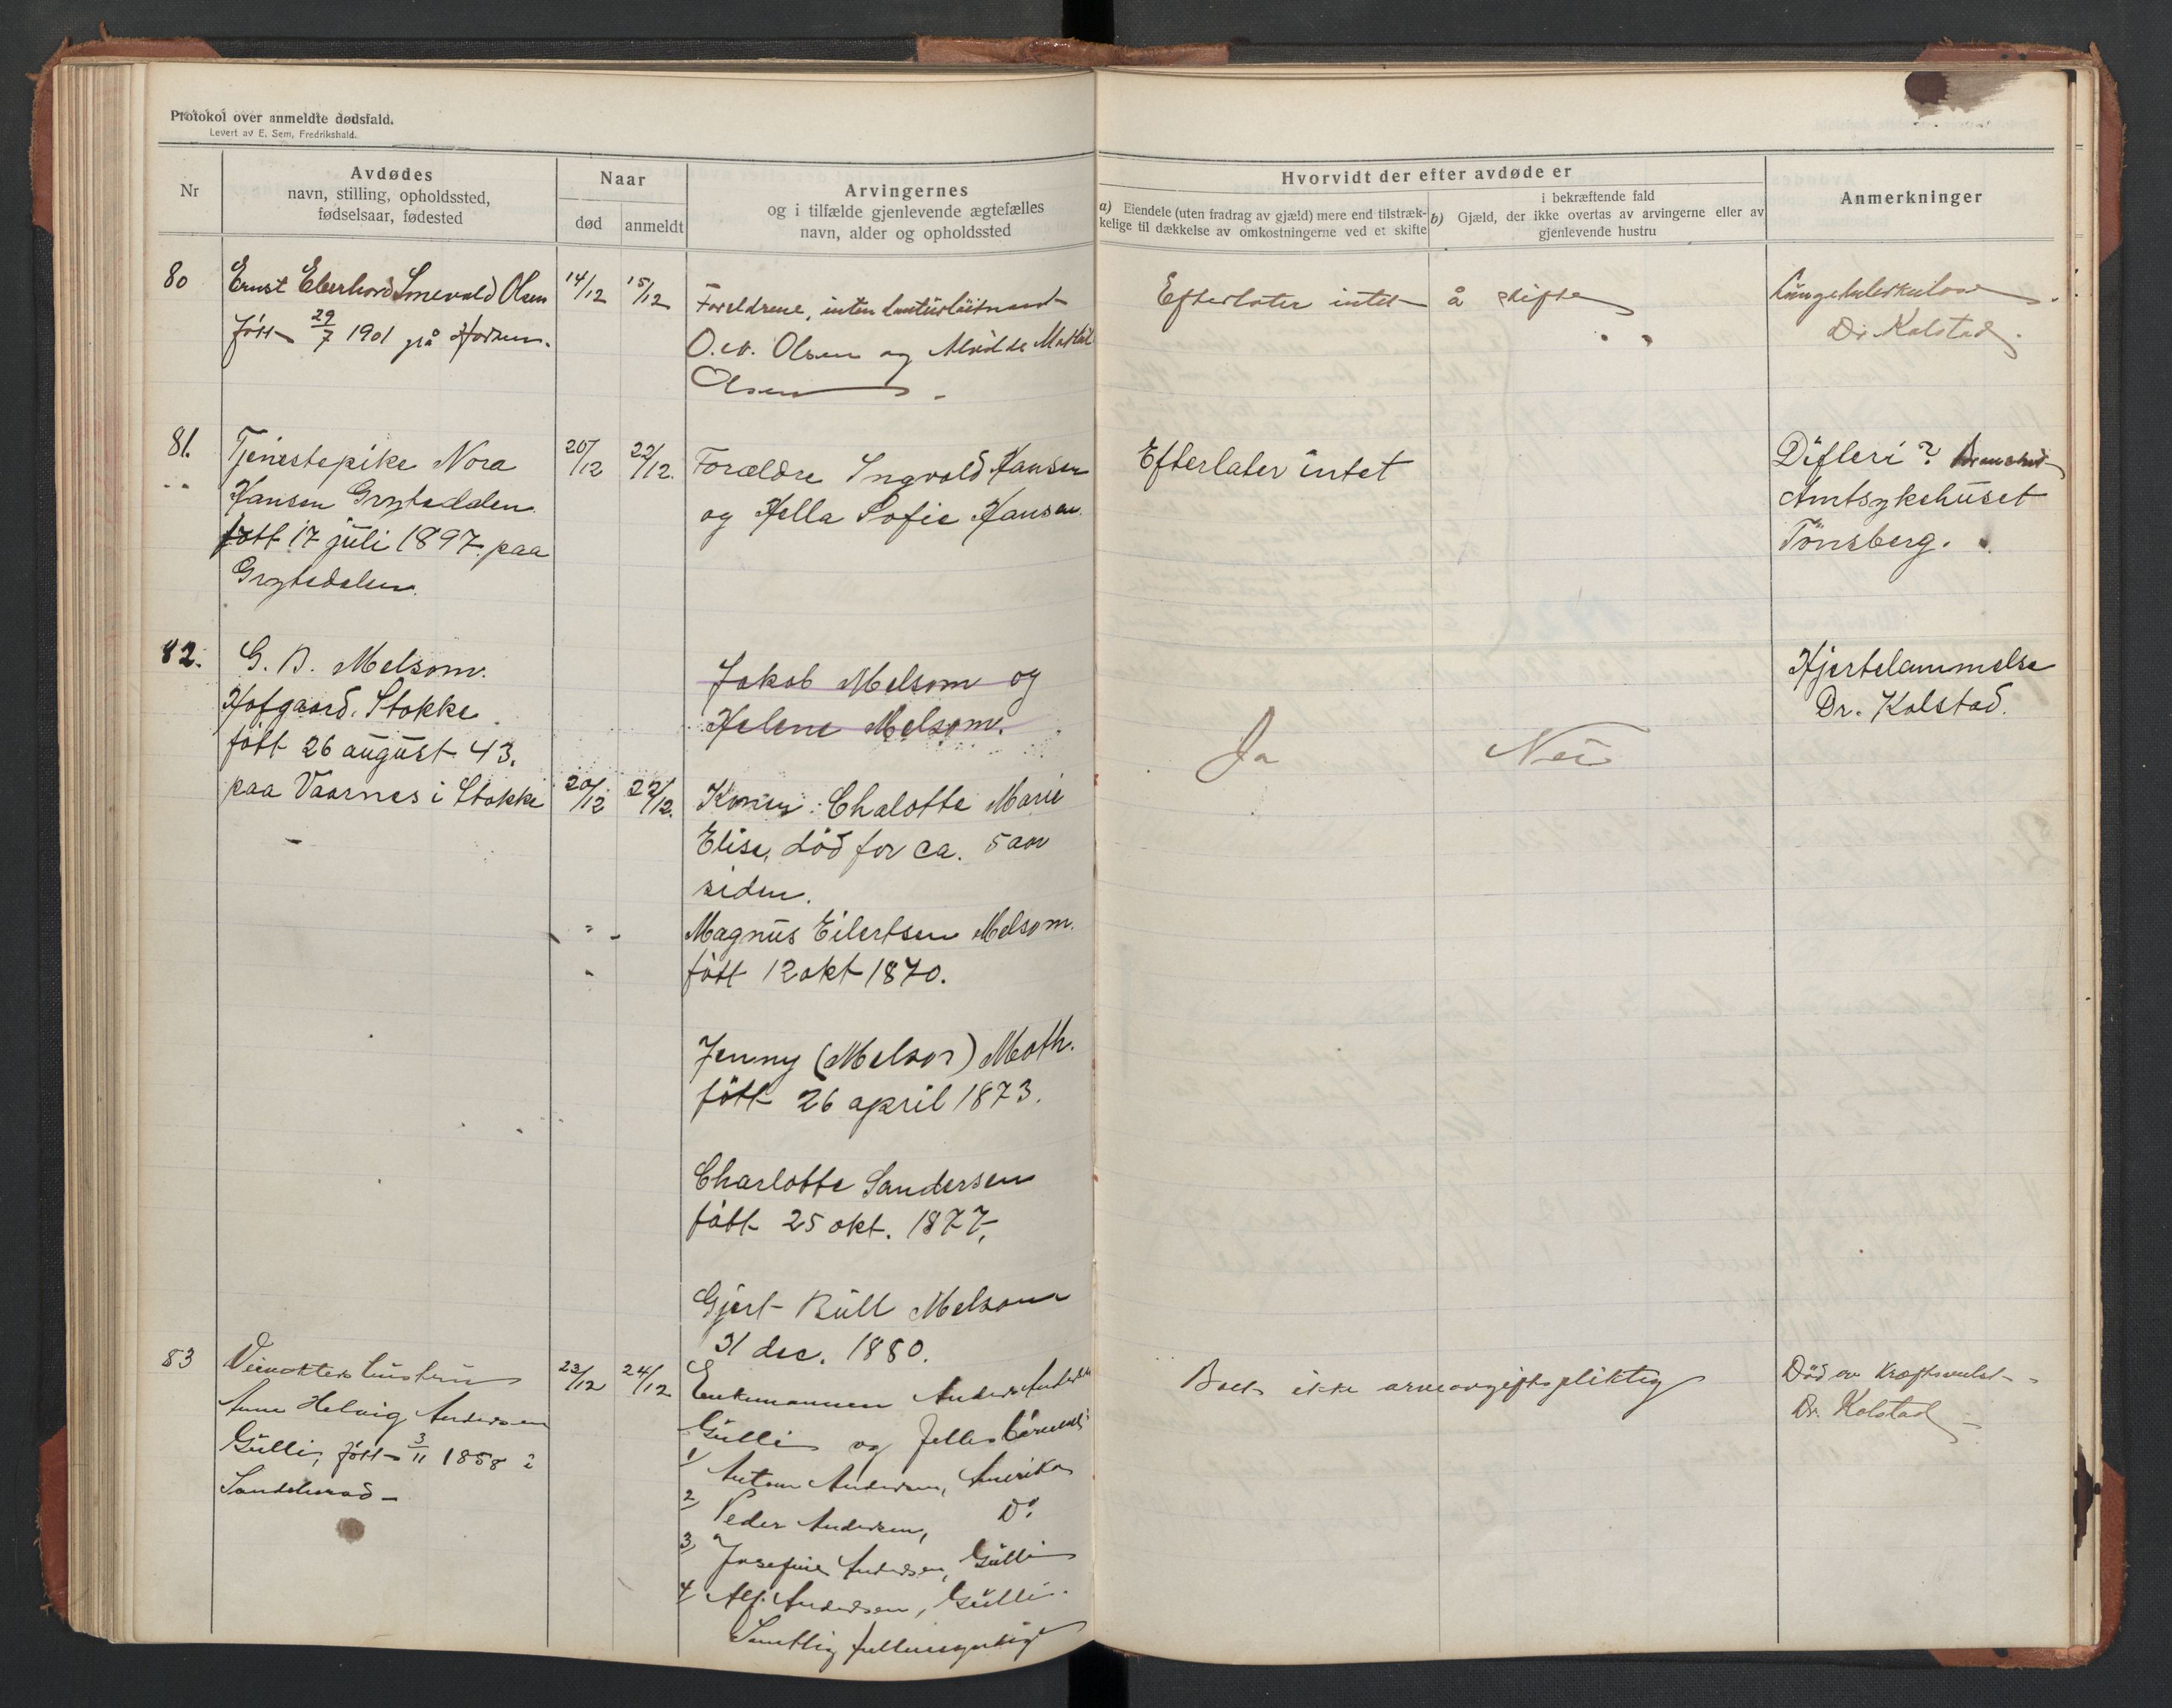 Protokol over anmeldte dødsfald.
Levert av E. Sem, Fredrikshald.
Nr
Avdødes
navn, stilling, opholdssted,
fødselsaar, fødested
Naar
død
anmeldt
Arvingernes
og i tilfælde gjenlevende ægtefælles
navn, alder og opholdssted
Hvorvidt der efter avdøde er
a) Eiendele (uten fradrag av gjæld) mere end tilstræk-
kelige til dækkelse av omkostningerne ved et skifte
i bekræftende fald
b) Gjæld, der ikke overtas av arvingerne eller av
gjenlevende hustru
Anmerkninger
80
Ernst Eberhard Olsen
født 29/7 1901 på
14/12
15/12
Foreldrene,
O. Olsen og
Olsen
Efterlater intet å skifte
Lungetuberkulose
Dr Kolstad.
81.
Tjenestepike Nora
Hansen Grytedalen
født 17 juli 1897 paa
Grytedalen.
20/12
22/12.
Forældre Ingvald Hansen
og Hella Sofie Hansen.
Efterlater intet
Difteri?
Amtsykehuset
Tönsberg.
82.
G. B. Melsom.
Hofgaard. Stokke.
født 26 august 43.
paa Vaarnes i Stokke
20/12
22/12.
Jakob Melsom og
Helene Melsom.
Konen: Chalotte Marie
Elise, död for ca. 5 aar
siden.
Magnus Eilertsen Melsom.
født 12 okt 1870.
Jenny (Melsor) Moth.
født 26 april 1873.
Charlotte Sandersen
født 25 okt. 1877,
Gjert Bull Melsom
31 dec. 1880.
Ja
Nei
Hjertelammelse
Dr. Kolstad.
83
Veivokterhustru
Anne Helvig Andersen
Gulli, født 3/11 1858 i
Sandeherad
23/12
24/12
Enkemannen Anders Andersen
Gulli og fellesbarnene:
1/ Anton Andersen, Amerika
2/ Peder Andersen, Do.
3/ Josefine Andersen, Gulli
4/ Alf Andersen, Gulli.
Samtlig fuldmyndige
Boet ikke arveavgiftspliktig
Död av Kræftsvulst
Dr. Kolstad